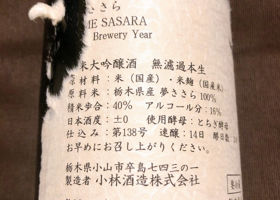 ささら
ME SASARA
Brewery Year
米大吟醸酒 無濾過本生
原材料：米（国産）・米麹（国産米）
原料米：栃木県産 夢ささら 100%
精米歩合：40% アルコール分：16%
日本酒度：±0 使用酵母：とちぎ酵母
仕込み：第138号 速醸：14日
お早めにお召し上がりください。
栃木県小山市卒島七四三の一
製造者 小林酒造株式会社